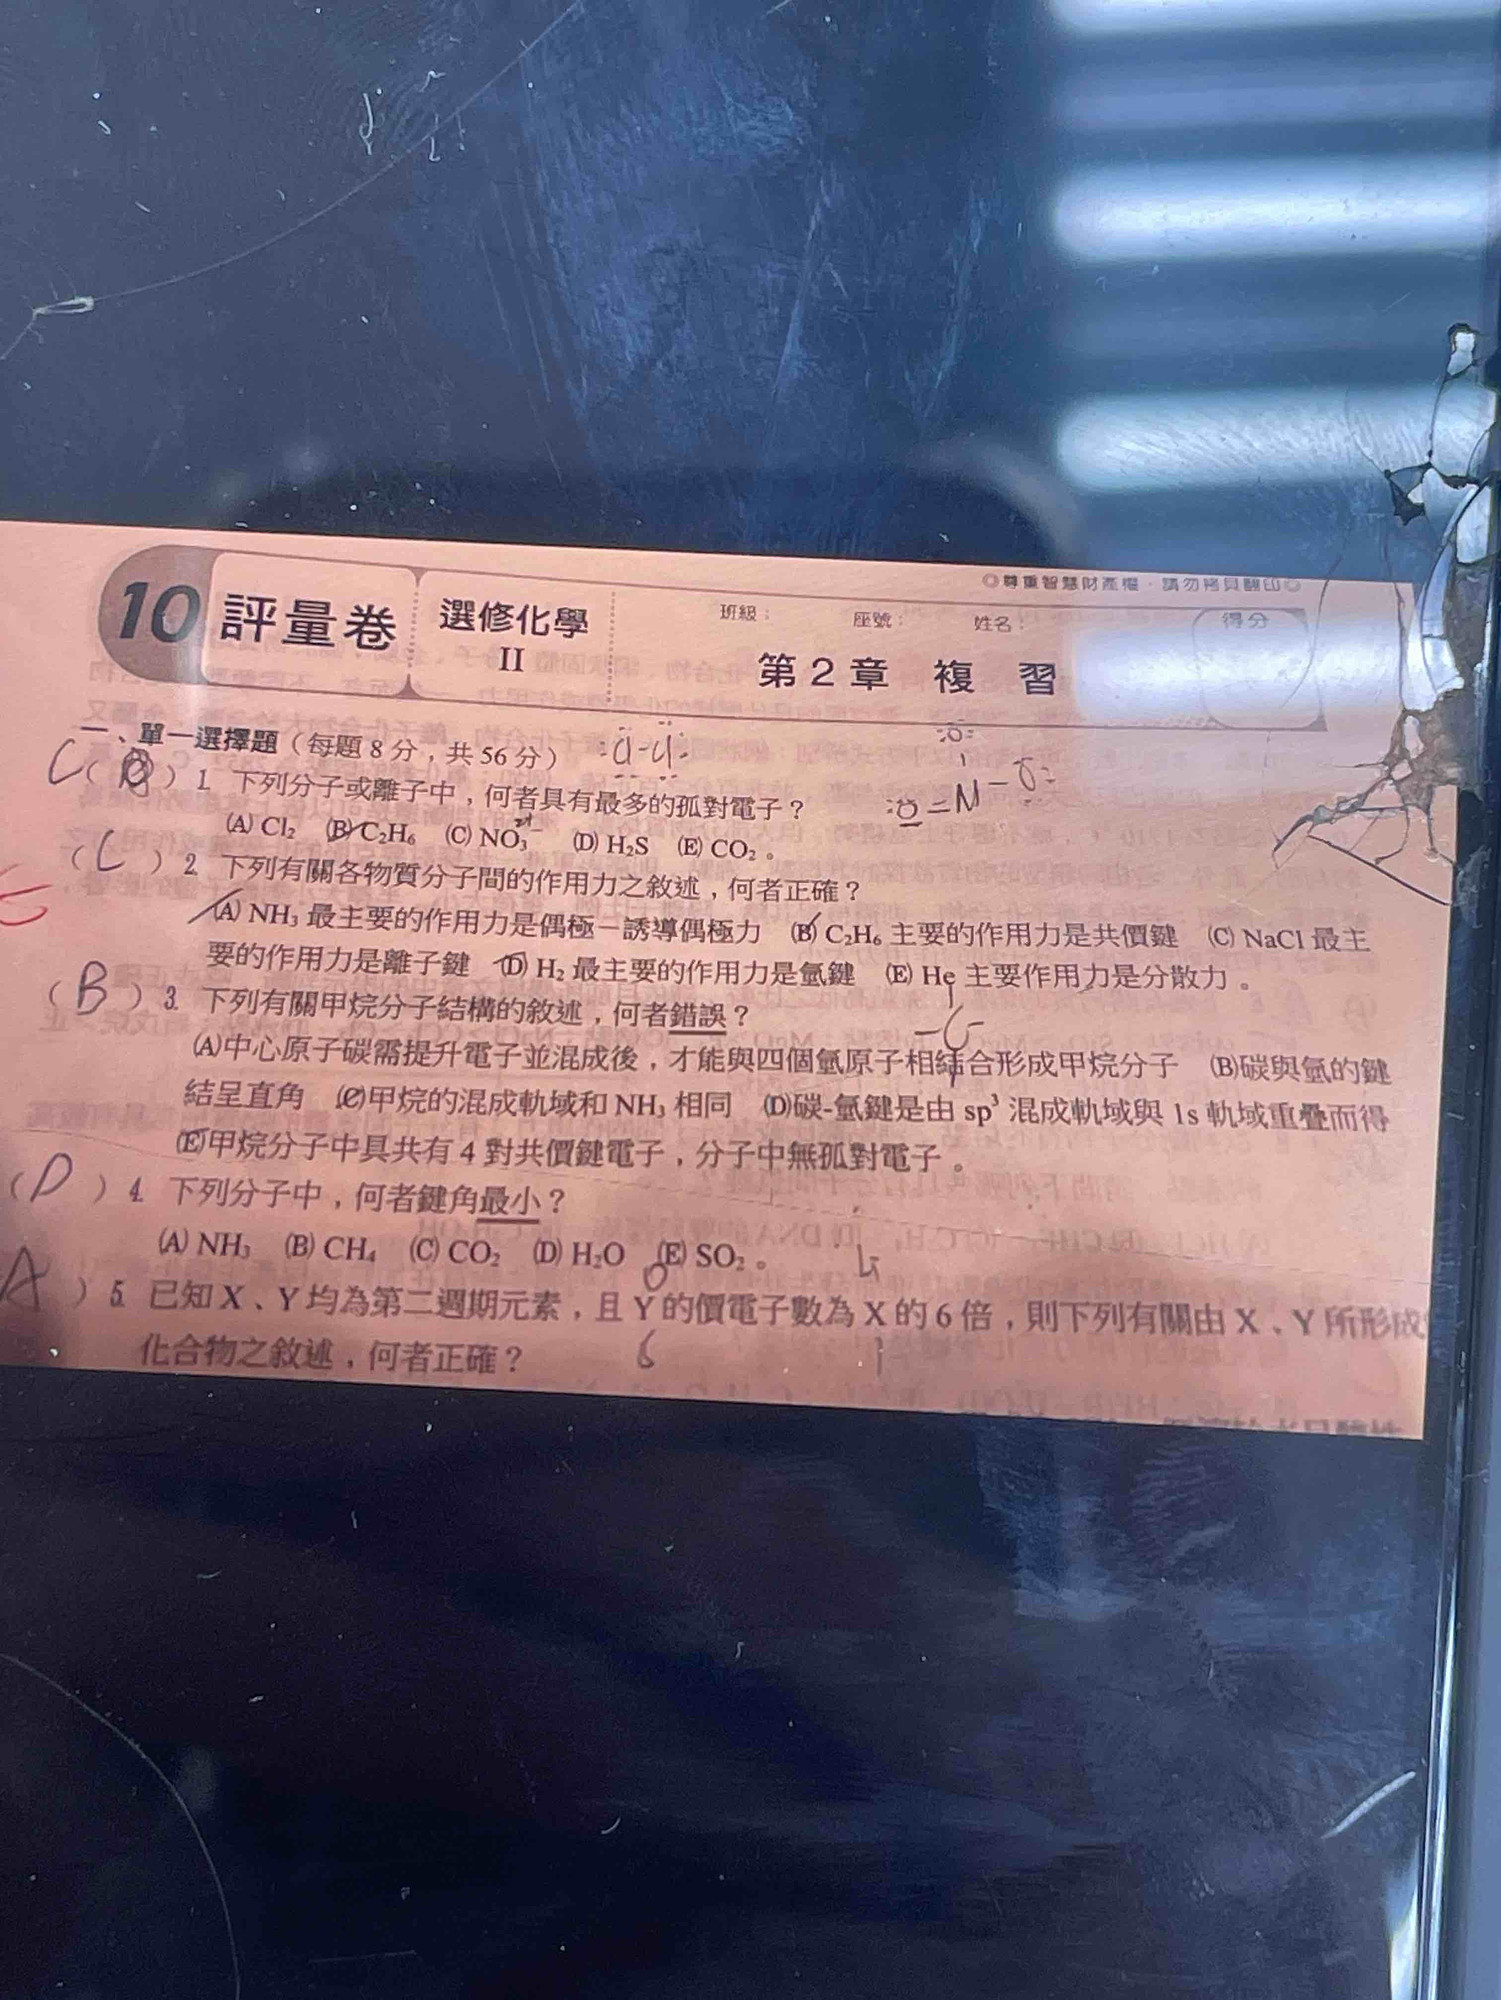 ◎尊重智慧財產權，請勿拷貝翻印◎
10 評量卷 選修化學 II 班級： 座號： 姓名： 得分
第2章 複習
一、單一選擇題（每題8分，共56分）
C（ ）1. 下列分子或離子中，何者具有最多的孤對電子？
(A) Cl₂ (B) C₂H₆ (C) NO₃⁻ (D) H₂S (E) CO₂。
（C）2. 下列有關各物質分子間的作用力之敘述，何者正確？
(A) NH₃ 最主要的作用力是偶極－誘導偶極力 (B) C₂H₆ 主要的作用力是共價鍵 (C) NaCl 最主
要的作用力是離子鍵 (D) H₂ 最主要的作用力是氫鍵 (E) He 主要作用力是分散力。
（B）3. 下列有關甲烷分子結構的敘述，何者錯誤？
(A)中心原子碳需提升電子並混成後，才能與四個氫原子相結合形成甲烷分子 (B)碳與氫的鍵
結呈直角 (C)甲烷的混成軌域和 NH₃ 相同 (D)碳-氫鍵是由 sp³ 混成軌域與 1s 軌域重疊而得
(E)甲烷分子中具共有 4 對共價鍵電子，分子中無孤對電子。
（D）4. 下列分子中，何者鍵角最小？
(A) NH₃ (B) CH₄ (C) CO₂ (D) H₂O (E) SO₂。
A ）5. 已知 X、Y 均為第二週期元素，且 Y 的價電子數為 X 的 6 倍，則下列有關由 X、Y 所形成
化合物之敘述，何者正確？ 6